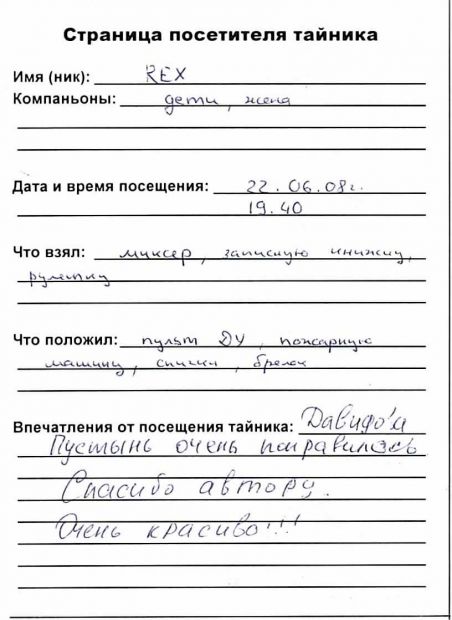 Страница посетителя тайника
Имя (ник): REX
Компаньоны: дети, жена
Дата и время посещения: 22.06.08г.
19.40
Что взял: миксер, записную книжку,
рулетку
Что положил: пульт ДУ, пожарную
машину, спички, брелок
Впечатления от посещения тайника: Давидо'а
Пустынь очень понравилась
Спасибо автору.
Очень красиво!!!